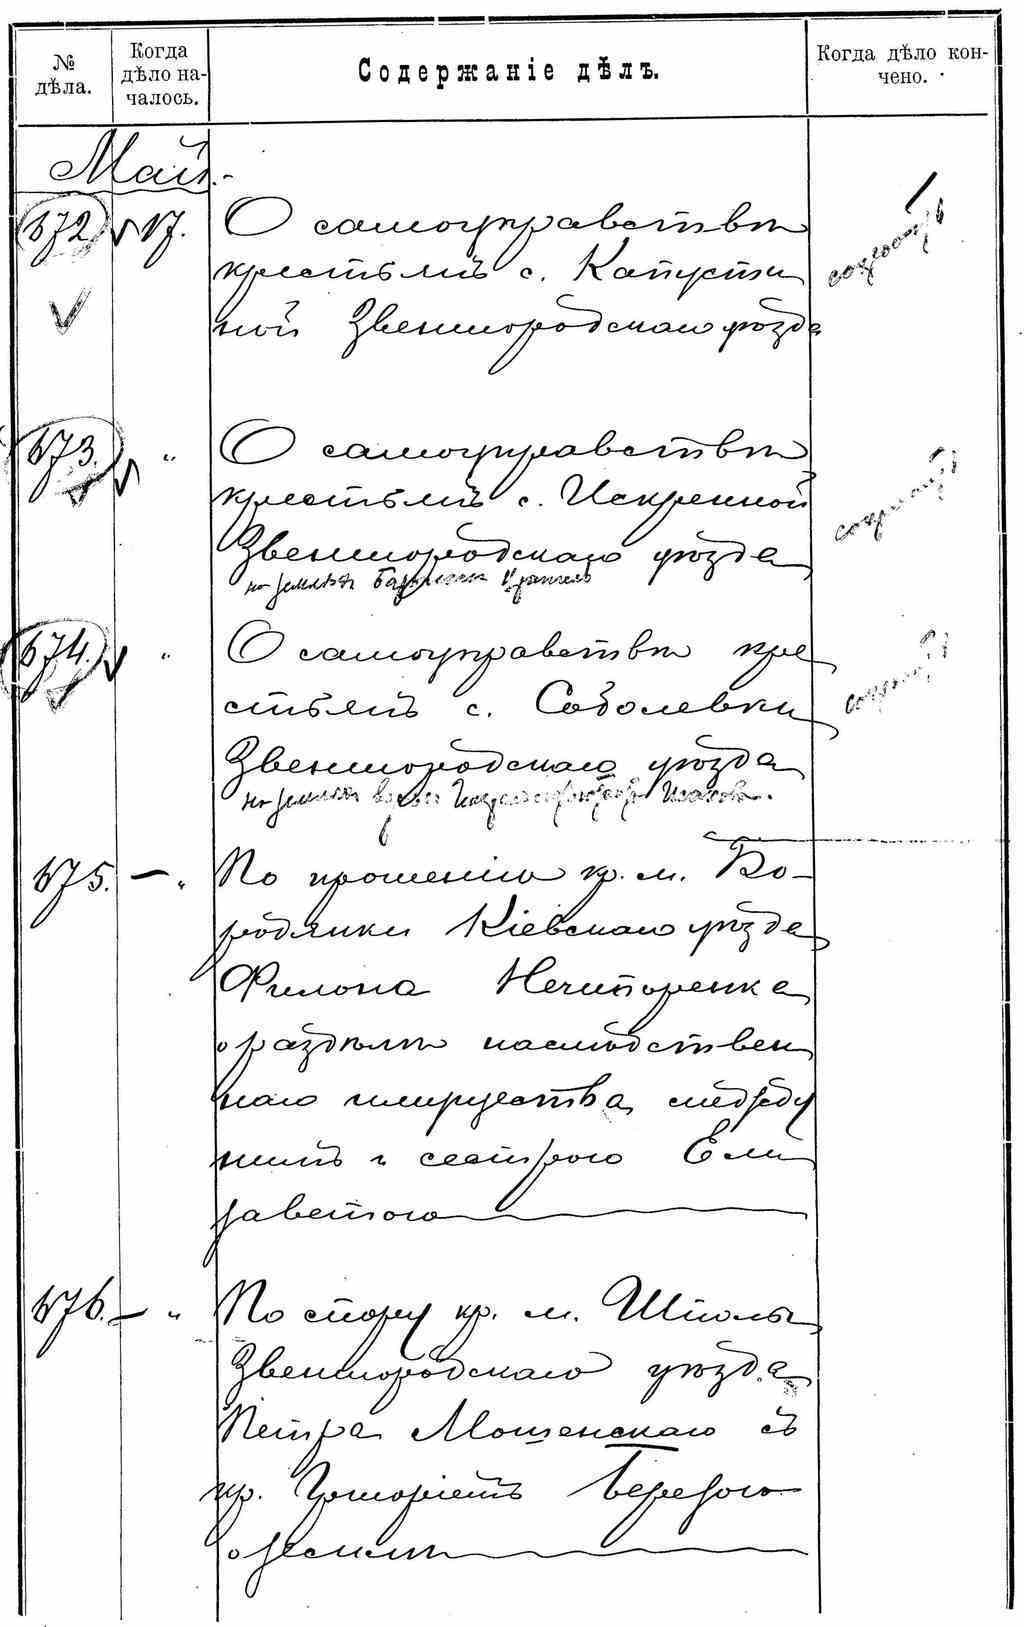 № дѣла.
Когда дѣло на-
чалось.
Содержаніе дѣлъ.
Когда дѣло кон-
чено.
Май.
672
17.
О самоуправствѣ
крестьянъ с. Капусти
ной Звенигородскаго уѣзда
673.
"
О самоуправствѣ
крестьянъ с. Искренной
Звенигородскаго уѣзда
на земляхъ
674.
"
О самоуправствѣ кре
стьянъ с. Соболевки
Звенигородскаго уѣзда
на земляхъ
675. — "
По прошенію кр. м. Бо-
родянки Кіевскаго уѣзда
Филона Нечипоренка
о раздѣлѣ наслѣдствен
наго имущества между
нимъ и сестрою Ели
заветою
676. — "
По спору кр. м. Шполы
Звенигородскаго уѣзда
Петра Мошенскаго съ
кр. Григоріемъ
о землѣ